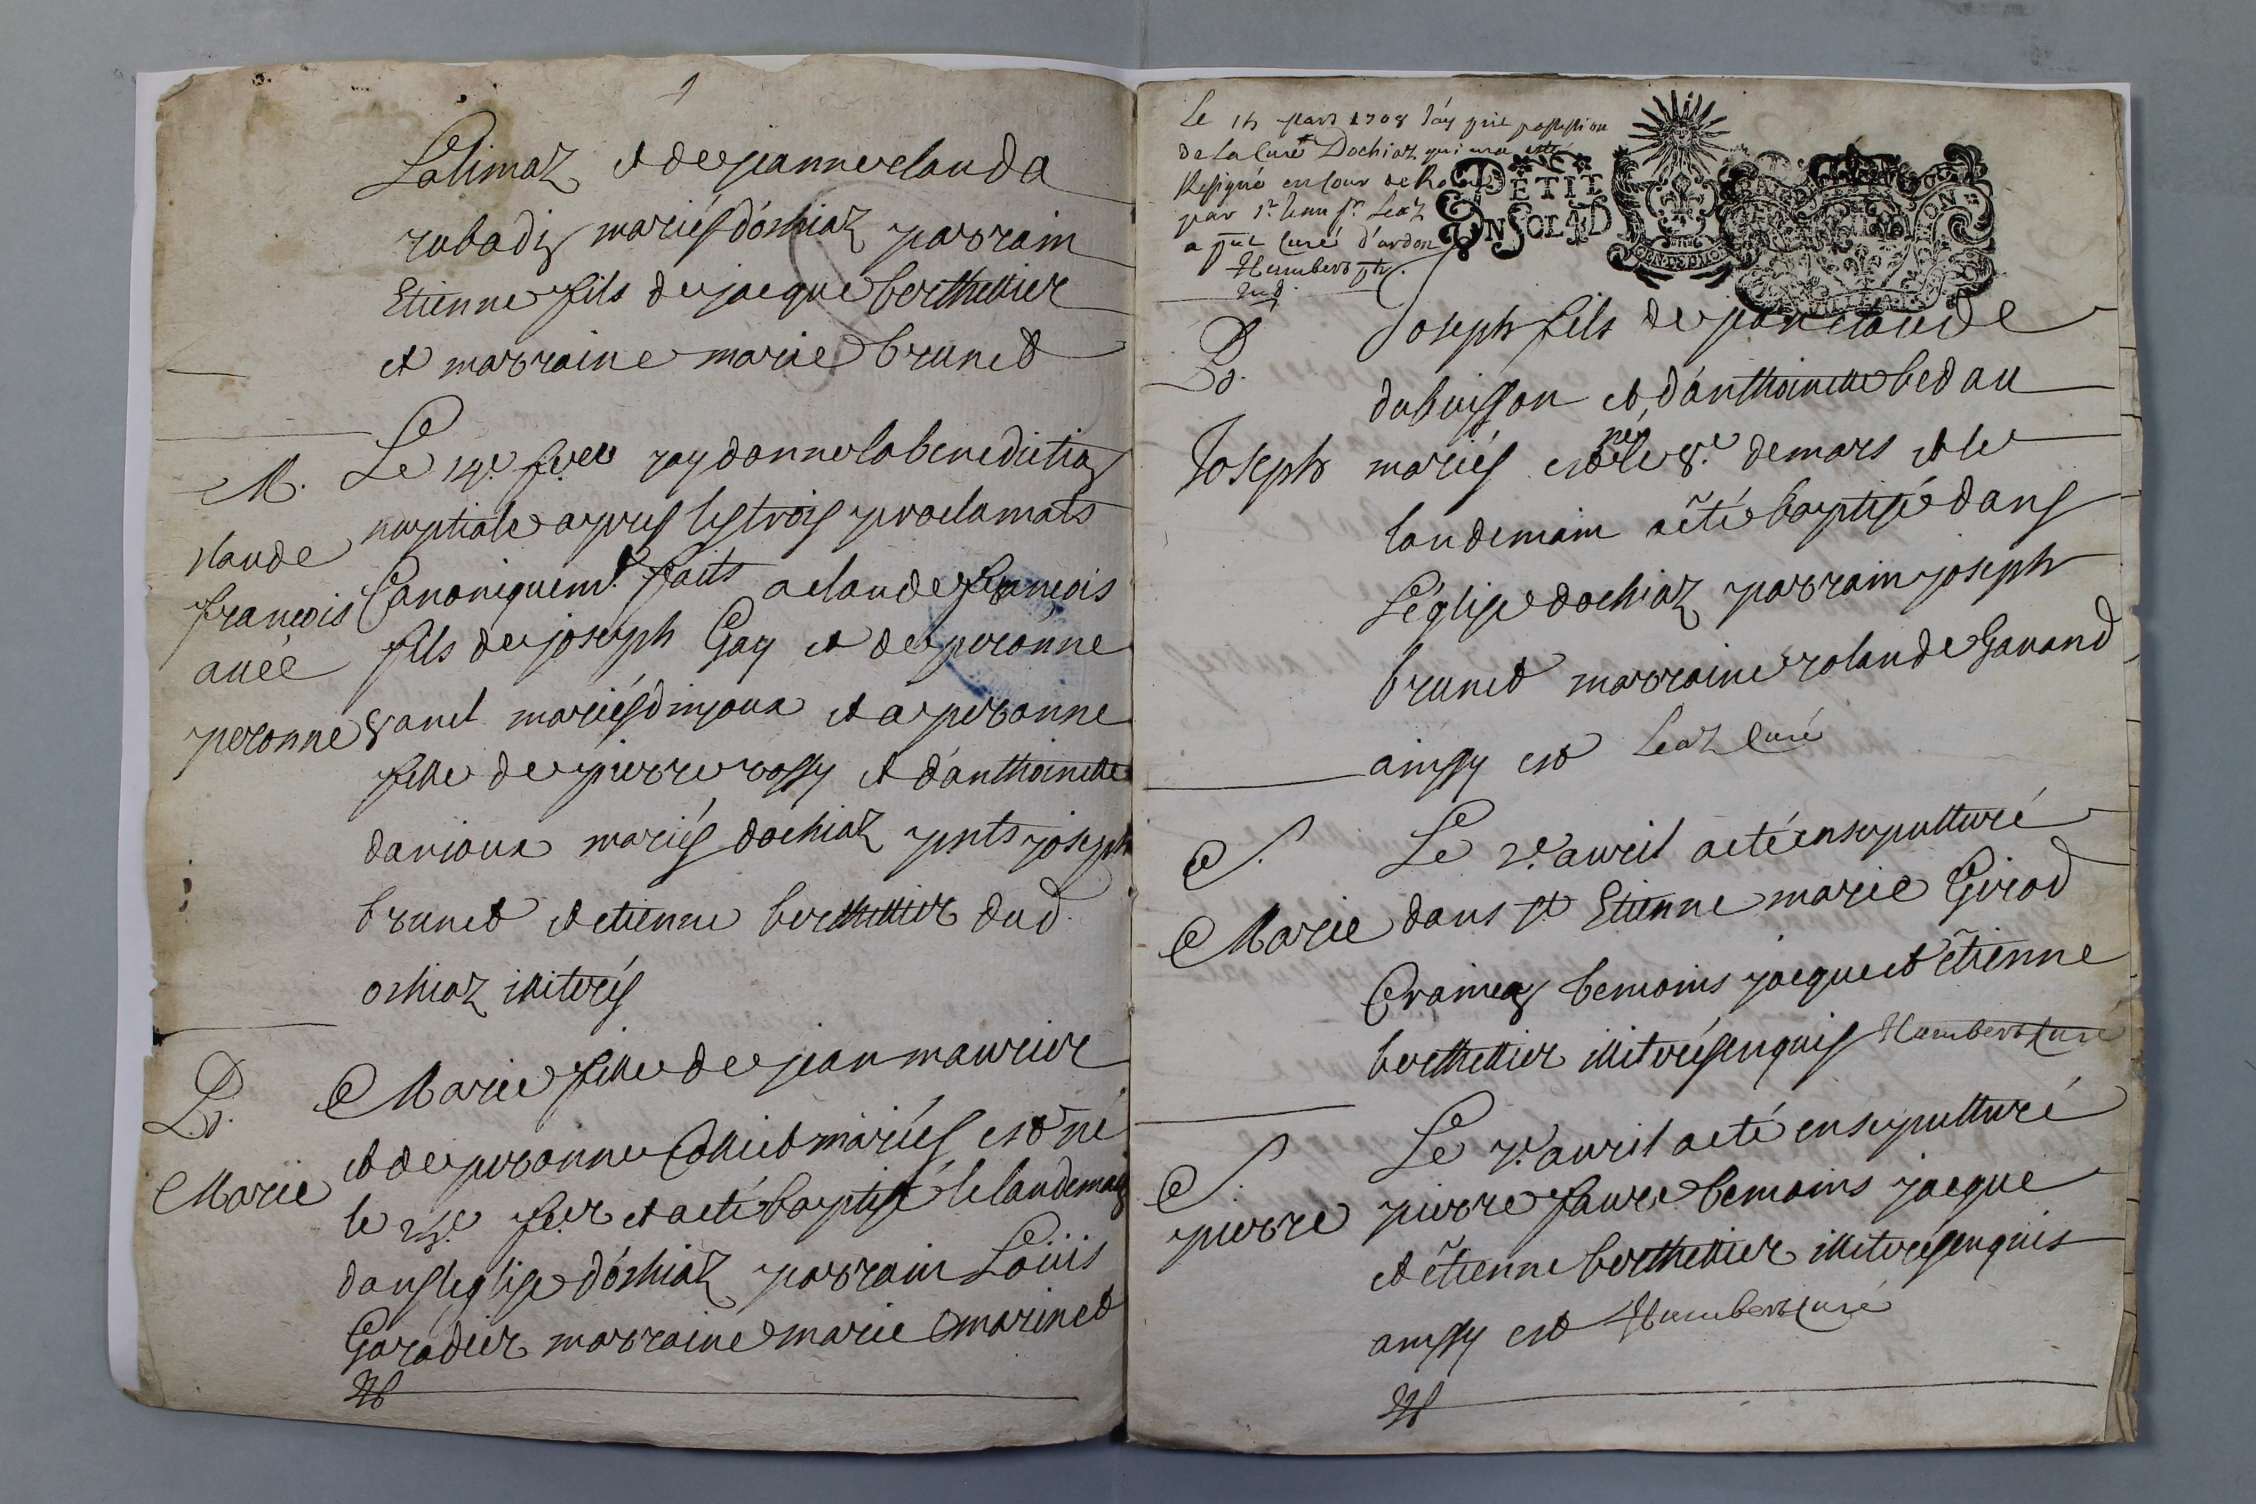 Lalimaz et de jeanne clauda
rubadz mariés d'ochiaz parrain
Etienne fils de jacque berthettier
et marraine marie brunet
M.
claude
françois
avec
peronne
Le 14e fer jay donne la benediction
nuptiale apres les trois proclamats
Canoniquemt faits a claude françois
fils de joseph Gay et de peronne
mariés dinjoux et a peronne
fille de pierre rossy et d'anthoinette
darioux mariés dochiaz pnts joseph
brunet et etienne berthettier dud.
ochiaz illiterés
B.
Marie
Marie fille de jean maurier
et de peronne Collict mariés est né
le fer et a eté baptisé le landemain
dans leglise d'ochiaz parrain Loüis
Garadier marraine marie marinet
Le 14 mars 1708 J'ay pris possession
de la Cure Dochiaz qui m'a esté
Resigné en Cour de Rome
par Sr Jean fr Leaz
a pnt Curé d'ardon
Humbert ptr.
PETIT
UN SOL 4 D
GEN DE BOURG
B.
Joseph
Joseph fils de jean claude
dubuisson et d'anthoinette bedau
mariés est né le 8e de mars et le
landemain a été baptisé dans
L'église dochiaz parrain joseph
brunet marraine rolande Gavand
ainssy est Leaz Curé
S.
Marie
Le 2e avril a eté ensepulturé
dans st Etienne marie Girod
Crainez temoins jacque et étienne
berthettier illiterés enquis Humbert Curé
S.
pierre
Le 7e avril a eté ensepulturé
pierre favre temoins jacque
et étienne berthettier illiterés enquis
ainssy est Humbert Curé